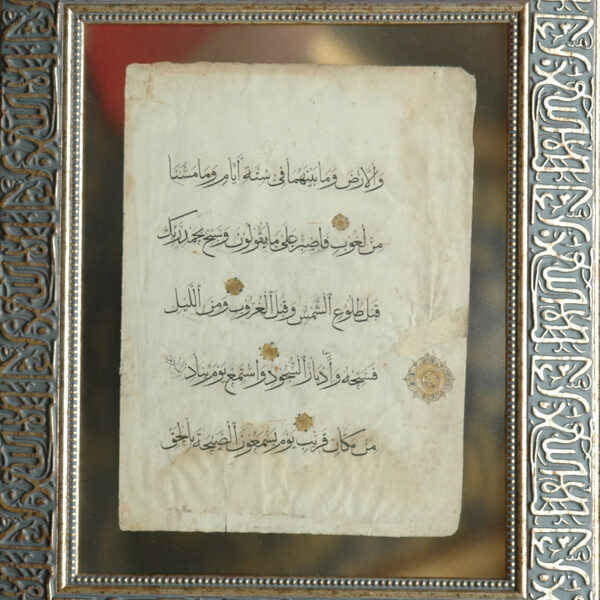 وَالْأَرْضَ وَمَا بَيْنَهُمَا فِي سِتَّةِ أَيَّامٍ وَمَا مَسَّنَا
مِنْ لُغُوبٍ فَاصْبِرْ عَلَى مَا يَقُولُونَ وَسَبِّحْ بِحَمْدِ رَبِّكَ
قَبْلَ طُلُوعِ الشَّمْسِ وَقَبْلَ الْغُرُوبِ وَمِنَ اللَّيْلِ
فَسَبِّحْهُ وَأَدْبَارَ السُّجُودِ وَاسْتَمِعْ يَوْمَ يُنَادِ
مِنْ مَكَانٍ قَرِيبٍ يَوْمَ يَسْمَعُونَ الصَّيْحَةَ بِالْحَقِّ